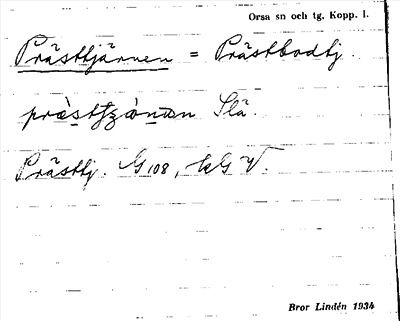 Orsa sn och tg. Kopp. l.
Prästtjärnen = Prästbodtj.
Slä.
Prästtj. G 108, LG V.
Bror Lindén 1934